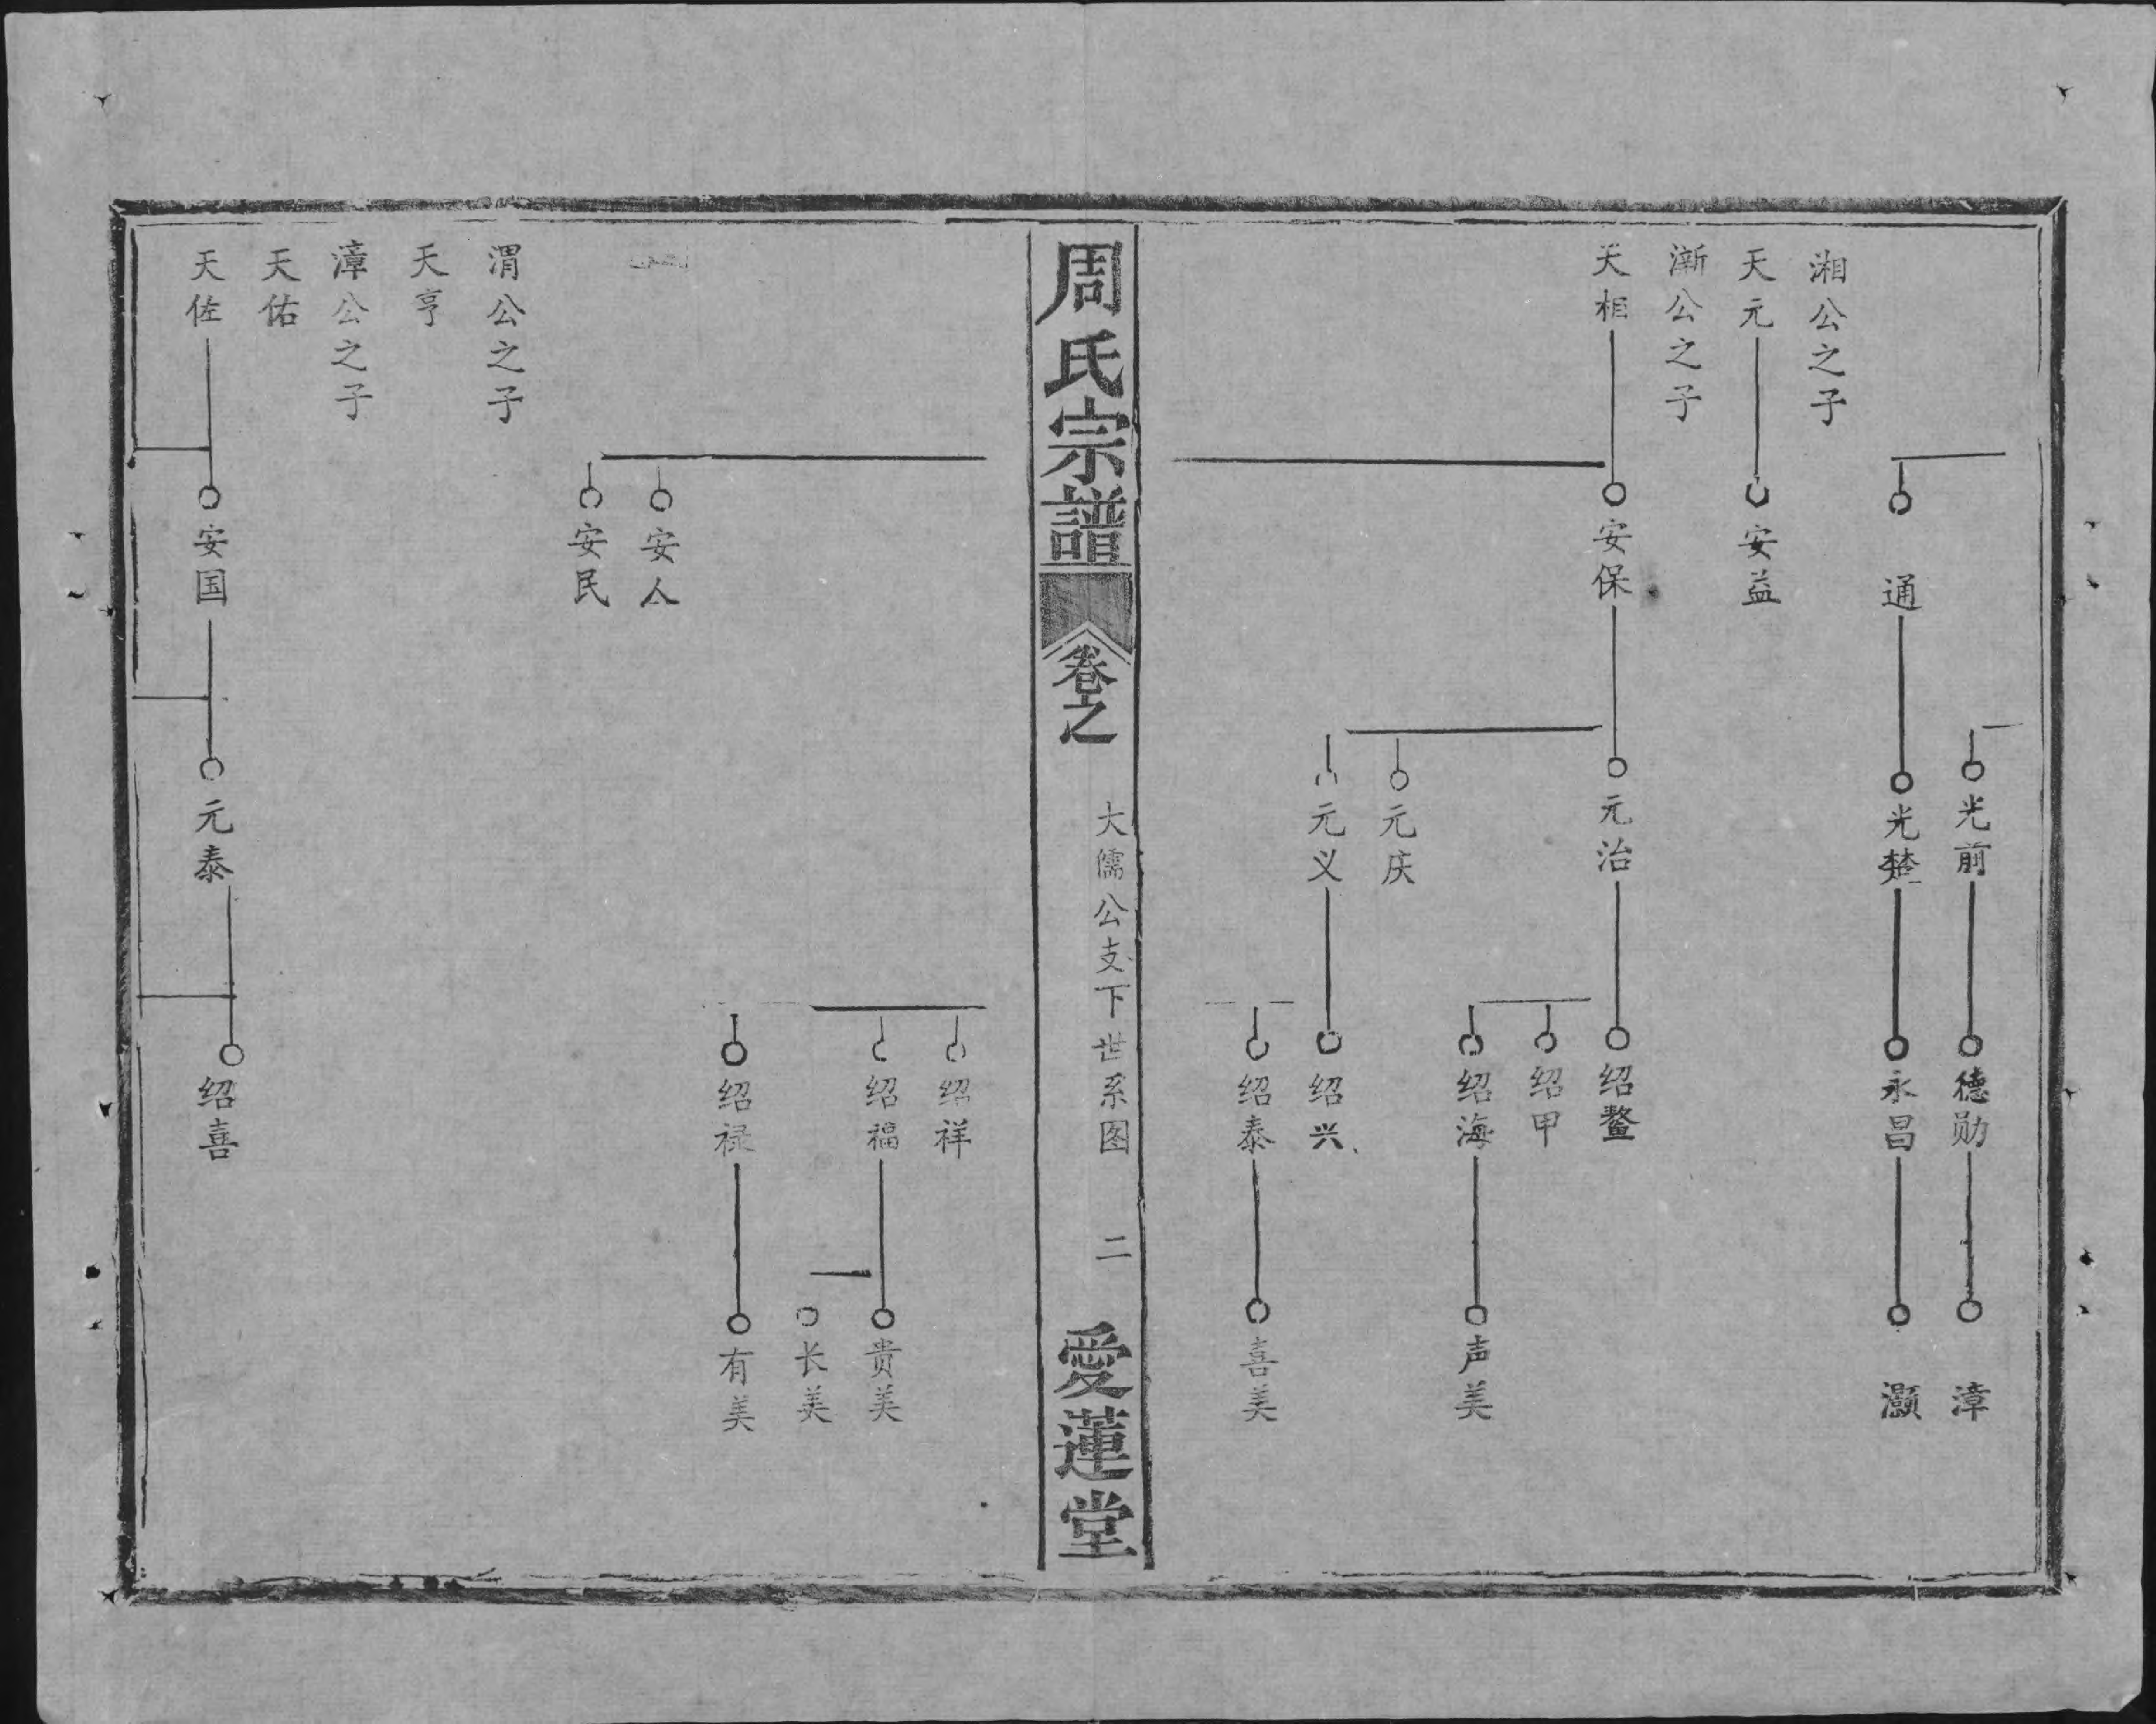 光前
德勋
漳
通
光楚
永昌
灏
湘公之子
天元
安益
渐公之子
天相
安保
元治
绍鳌
绍甲
绍海
声美
元庆
元义
绍兴
绍泰
喜美
周氏宗譜
卷之
大儒公支下世系图
二
愛蓮堂
绍祥
绍福
贵美
长美
绍禄
有美
安人
安民
渭公之子
天亨
漳公之子
天佑
天佐
安国
元泰
绍喜